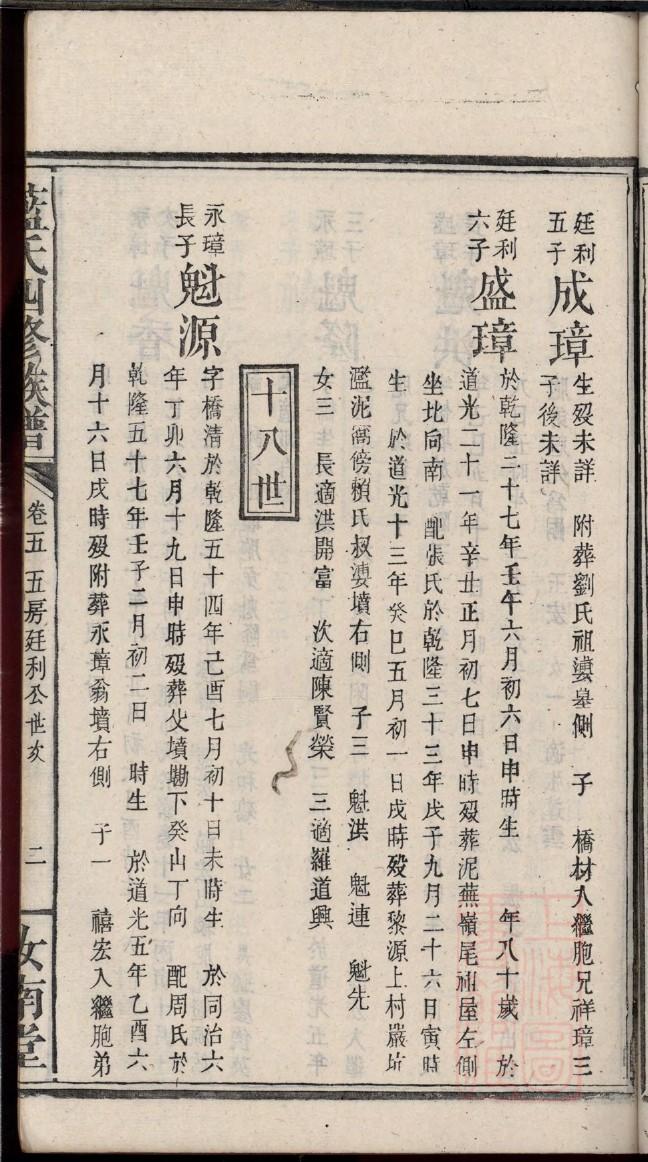 廷利
五子
成璋
生殁未詳 附葬劉氏祖婆墓側 子 橋材入繼胞兄祥璋三
子後未詳
廷利
六子
盛璋
於乾隆二十七年壬午六月初六日申時生 年八十歲 於
道光二十一年辛丑正月初七日申時殁葬泥蕪嶺尾社屋左側
坐北向南 配張氏於乾隆三十三年戊子九月二十六日寅時
生 於道光十三年癸巳五月初一日戌時殁葬黎源上村嚴坑
濫泥窩傍賴氏叔婆墳右側 子三 魁洪 魁連 魁先
女三 長適洪開富 次適陳賢榮 三適羅道興
十八世
永璋
長子
魁源
字橋清於乾隆五十四年己酉七月初十日未時生 於同治六
年丁卯六月十九日申時殁葬父墳塝下癸山丁向 配周氏於
乾隆五十七年壬子二月初二日 時生 於道光五年乙酉六
月十六日戌時殁附葬永璋翁墳右側 子一 禧宏入繼胞弟
藍氏四修族譜 卷五 五房廷利公世次 二 汝南堂